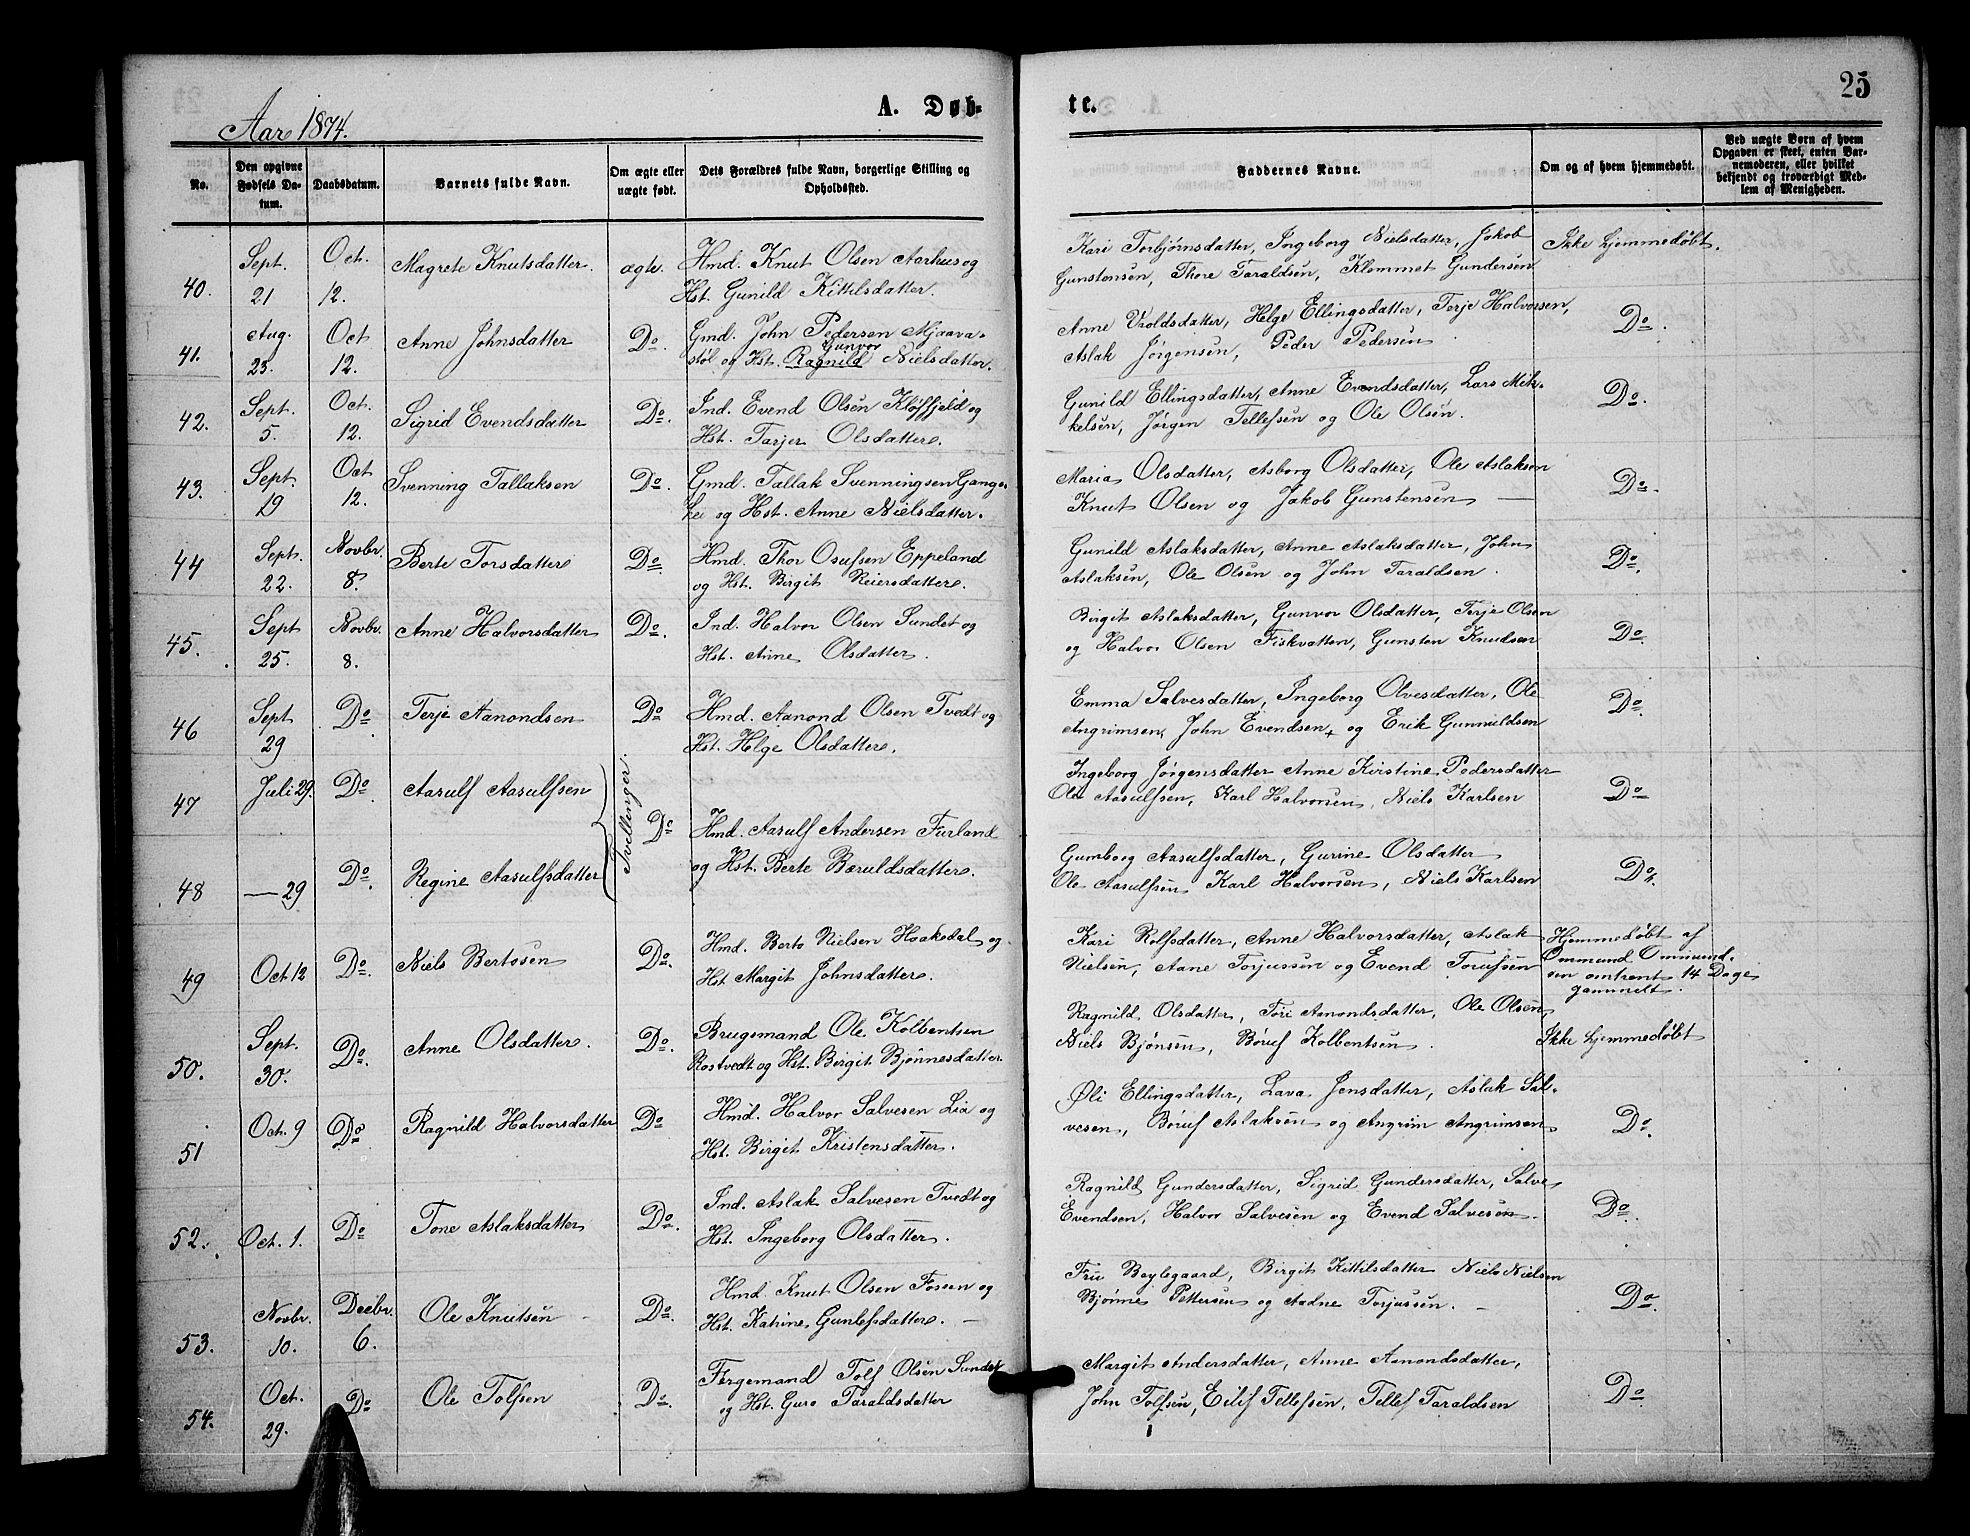 25
A. Døb-
te.
Aar 1874.
No.
Den opgivne Fødsels Da-tum.
Daabsdatum.
Barnets fulde Navn.
Om ægte eller uægte født.
Dets Forældres fulde Navn, borgerlige Stilling og Opholdssted.
Faddernes Navne.
Om og af hvem hjemmedøbt.
Ved uægte Børn af hvem Opgaven er skeet, enten Bar-nemoderen, eller hvilket bekjendt og troværdigt Med-lem af Menigheden.
40. Sept. 21 Oct. 12. Magrete Knutsdatter. ægte.
Hmd. Knut Olsen Aarhus og
Hst. Gunild Kittilsdatter.
Kari Torbjørnsdatter, Ingeborg Nielsdatter, Jakob
Gunstensen, Thore Taraldsen, Klemmet Gundersen
Ikke hjemmedøbt.
41. Aug. 23. Oct 12. Anne Johnsdatter Do.
Gmd. John Pedersen Mjaava-
Gunvor
støl og Hst. Ragnild Nielsdatter.
Anne Vroldsdatter, Helge Ellingsdatter, Terje Halvorsen,
Aslak Jørgensen, Peder Pedersen
Do.
42. Sept. 5. Oct. 12. Sigrid Evendsdatter Do.
Ind. Evend Olsen Kløffjeld og
Hst. Tarjer Olsdatter.
Gunild Ellingsdatter, Anne Evendsdatter, Lars Mik-
kelsen, Jørgen Tellefsen og Ole Olsen.
Do.
43. Sept. 19 Oct 12. Svenning Tallaksen Do.
Gmd. Tallak Svenningsen Gange-
hei og Hst. Anne Nielsdatter.
Maria Olsdatter, Asborg Olsdatter, Ole Aslaksen
Knut Olsen og Jakob Gunstensen —
Do.
44 Sept. 22. Novbr. 8. Berte Torsdatter Do.
Hmd. Thor Osufsen Eppeland
og Hst. Birgit Reiersdatter.
Gunild Aslaksdatter, Anne Aslaksdatter, John
Aslaksen, Ole Olsen og John Taraldsen.
Do.
45. Sept 25. Novbr. 8. Anne Halvorsdatter Do.
Ind. Halvor Olsen Sundet og
Hst. Anne Olsdatter.
Birgit Aslaksdatter, Gunvor Olsdatter, Terje Olsen
og Halvor Olsen Fiskvatten, Gunsten Knudsen
Do.
46 Sept 29 Do Terje Aanondsen Do
Hmd. Aanond Olsen Tvedt og
Hst. Helge Olsdatter.
Emma Salvesdatter, Ingeborg Olvesdatter, Ole
Angrimsen, John Evendsen, og Erik Gunnuldsen
Do
47 Juli 29. Do. Aasulf Aasulfsen
Tvellinger.
Do
Hmd. Aasulf Andersen Furland
og Hst. Berte Bæruldsdatter.
Ingeborg Jørgensdatter Anne Kirstine Pedersdatter
Ole Aasulfsen, Karl Halvorsen, Niels Karlsen
Do
48 — 29 Do. Regine Aasulfsdatter
Gumborg Aasulfsdatter, Gurine Olsdatter
Ole Aasulfsen Karl Halvorsen, Niels Karlsen
Do.
49 Oct 12 Do. Niels Bertosen Do.
Hmd. Berto Nielsen Haakedal og
Hst Margit Johnsdatter.
Kari Rolfsdatter, Anne Halvorsdatter, Aslak
Nielsen, Aane Torjussen og Evend Torufsen
Hjemmedøbt af
Ommund Ommund-
sen omtrent 14 Dage
gammelt.
50. Sept. 30. Do. Anne Olsdatter. Do.
Brugsmand Ole Kolbentsen
Rostvedt og Hst. Birgit Bjønnesdatter.
Ragnild Olsdatter, Tori Aanondsdatter, Ole Olsen
Niels Bjønsen, Børuf Kolbentsen.
Ikke hjemmedøbt
51 Oct. 9 Do Ragnild Halvorsdatter Do
Hmd. Halvor Salvesen Lia og
Hst. Birgit Kristensdatter.
Øli Ellingsdatter, Lava Jensdatter, Aslak Sal-
vesen, Børuf Aslaksen og Angrim Angrimsen
Do.
52. Oct. 1. Do Tone Aslaksdatter Do.
Ind. Aslak Salvesen Tvedt og
Hst. Ingeborg Olsdatter.
Ragnild Gundersdatter, Sigrid Gundersdatter, Salve
Evendsen, Halvor Salvesen og Evend Salvesen.
Do.
53. Novbr. 10. Decbr. 6. Ole Knutsen Do.
Hmd. Knut Olsen Fossen og
Hst. Katrine Gunlefsdatter. —
Fru Beylegaard, Birgit Kittilsdatter Niels Nielsen
Bjønne Pettersen og Aadne Torjussen. —
Do.
54. Oct. 29. Do Ole Tolfsen Do.
Færgemand Tolf Olsen Sundet
og Hst. Guro Taraldsdatter
Margit Andersdatter, Anne Aanondsdatter,
John Tolfsen, Eilif Tellefsen, Tellef Taraldsen
Do